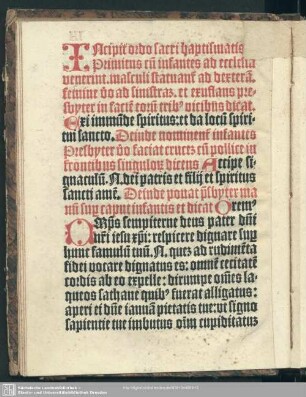 INcipit ordo sacri baptismatis
Primitus cū infantes ad ecclesia
venerint. masculi statuant᷑ ad dexterā.
femine vo ad sinistras. et exufflans pres
byter in faciē eorū trib⁹ vicibus dicat.
Exi immūde spiritus: et da locū spiri
tui sancto. Deinde nominent᷑ infantes
Presbyter vo faciat crucez cū pollice in
frontibus singuloꝝ dicens Accipe si
gnaculū. N. dei patris et filij et spiritus
sancti amē. Deinde ponat p̄sbyter ma
nū sup caput infantis et dicat Orem⁹
OMp̄s sempiterne deus pater dn̄i
nr̄i iesu xp̄i: respicere dignare sup
hunc famulū tuū. N. quez ad rudimēta
fidei vocare dignatus es: omnē cecitatē
cordis ab eo expelle: dirumpe om̄es la
queos sathane quib⁹ fuerat alligatus:
aperi ei dn̄e ianuā pietatis tue: ut signo
sapientie tue imbutus oīm cupiditatus